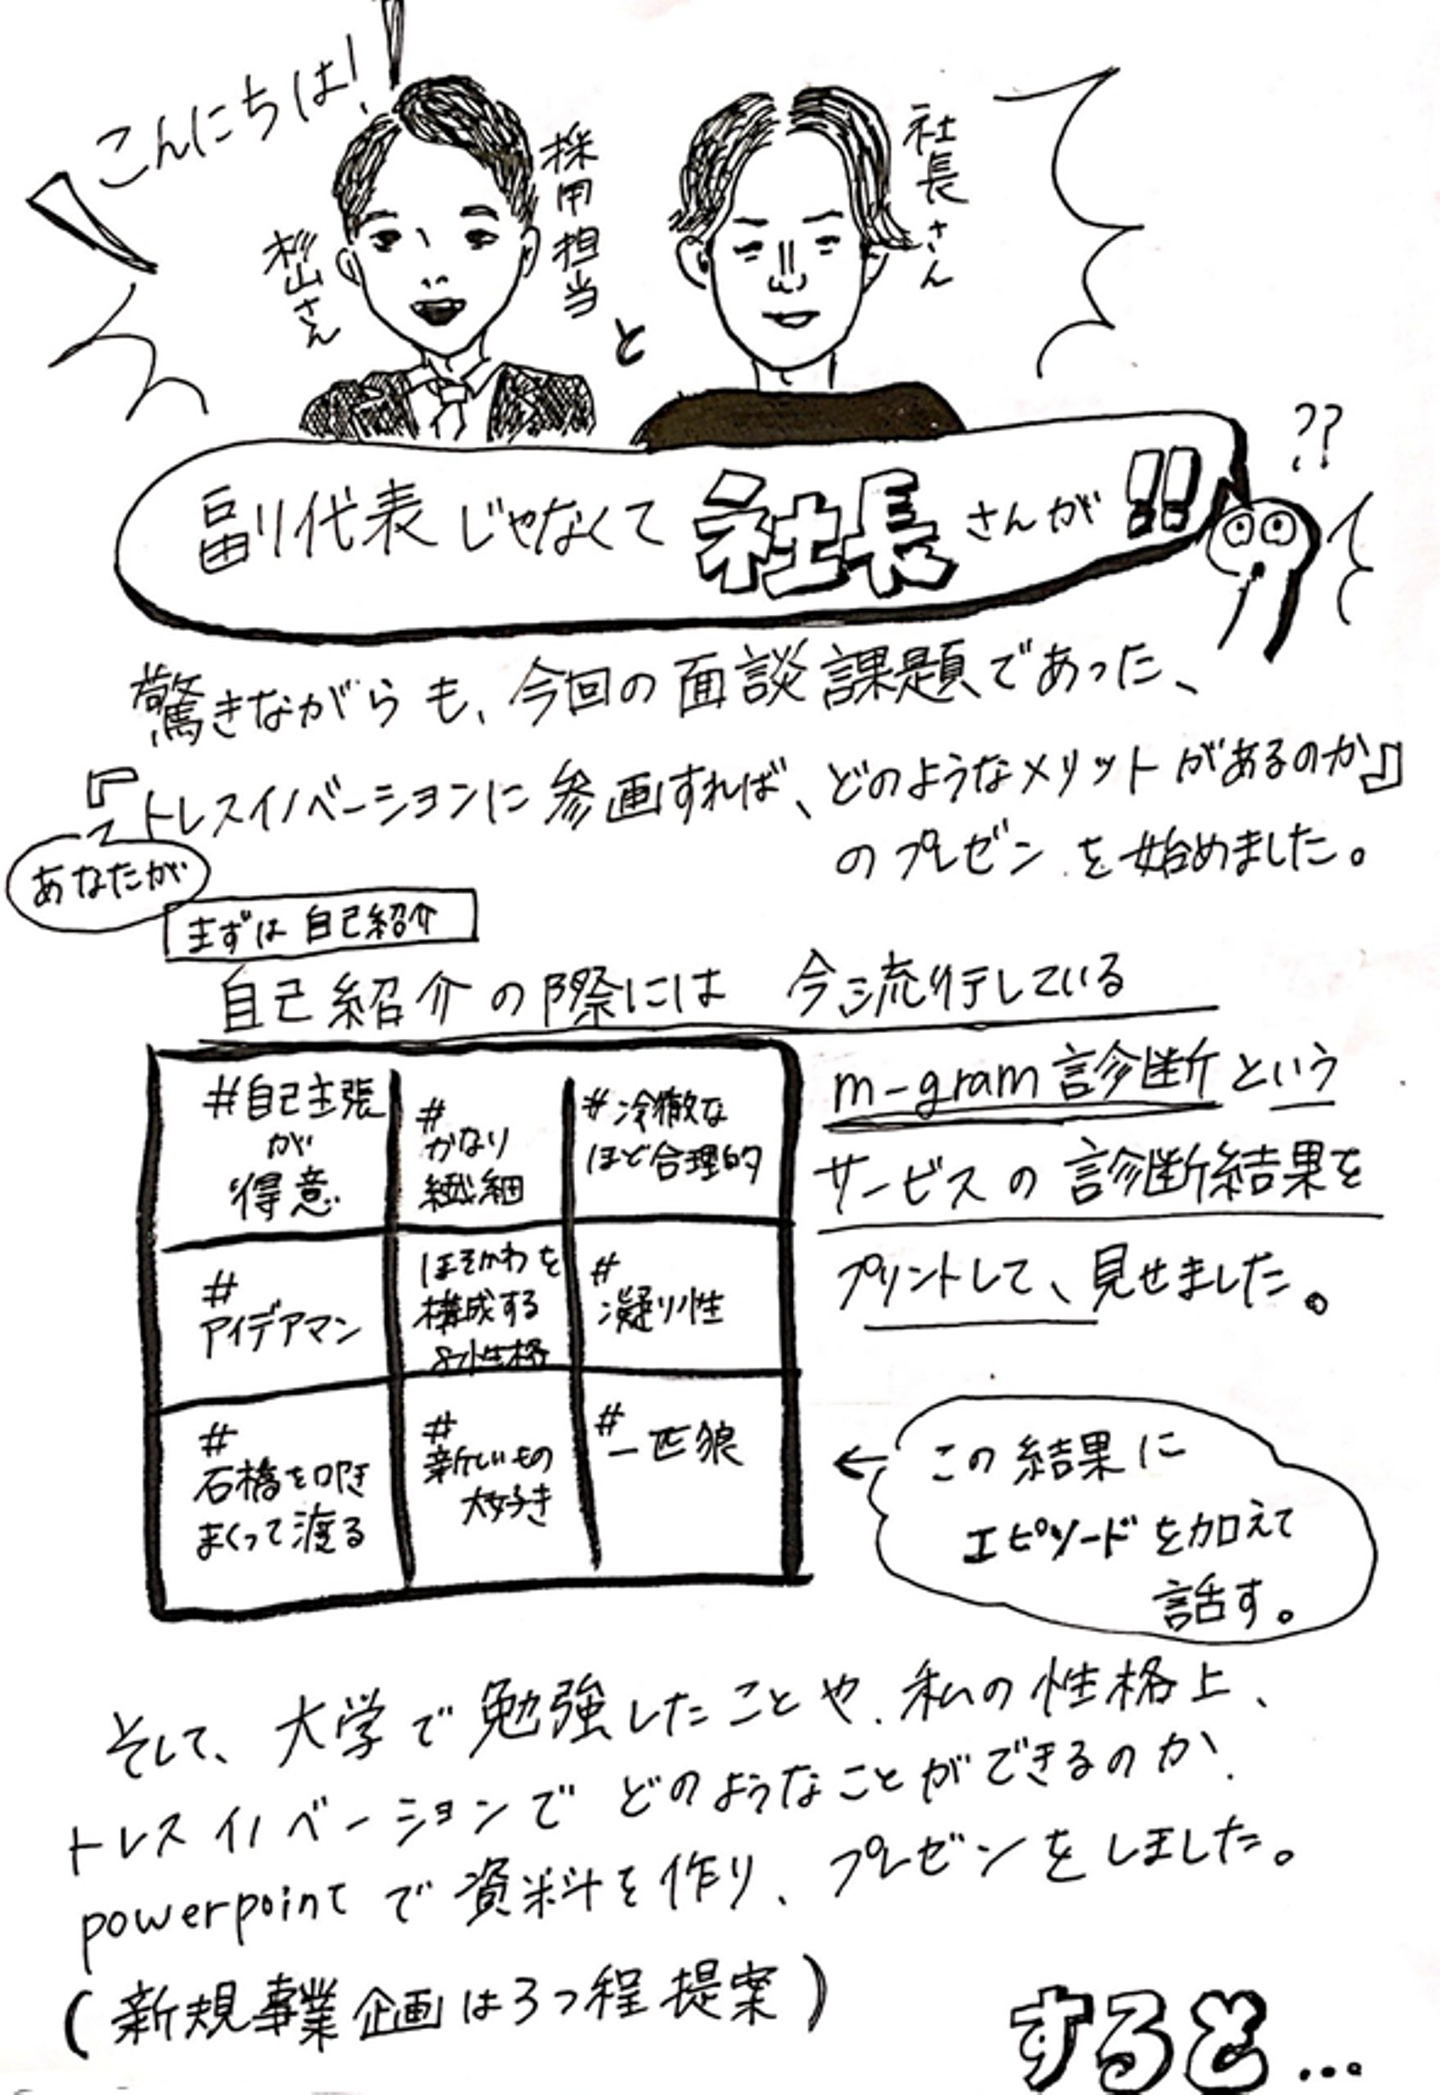 こんにちは!
採用担当
杉山さん
と
社長さん
副代表じゃなくて社長さんが!!
??
驚きながらも、今回の面談課題であった、
『トレスイノベーションに参画すれば、どのようなメリットがあるのか』
あなたが
のプレゼンを始めました。
まずは自己紹介
自己紹介の際には 今流行している
m-gram診断という
サービスの診断結果を
プリントして、見せました。
#自己主張
が
得意
#
かなり
繊細
#冷徹な
ほど合理的
#
アイデアマン
ほそかわを
構成する
8つ性格
#
凝り性
#
石橋を叩き
まくって渡る
#
新しいもの
大好き
#
一匹狼
←この結果に
エピソードを加えて
話す。
そして、大学で勉強したことや、私の性格上、
トレスイノベーションでどのようなことができるのか、
powerpointで資料を作り、プレゼンをしました。
(新規事業企画は3つ程提案)
すると...